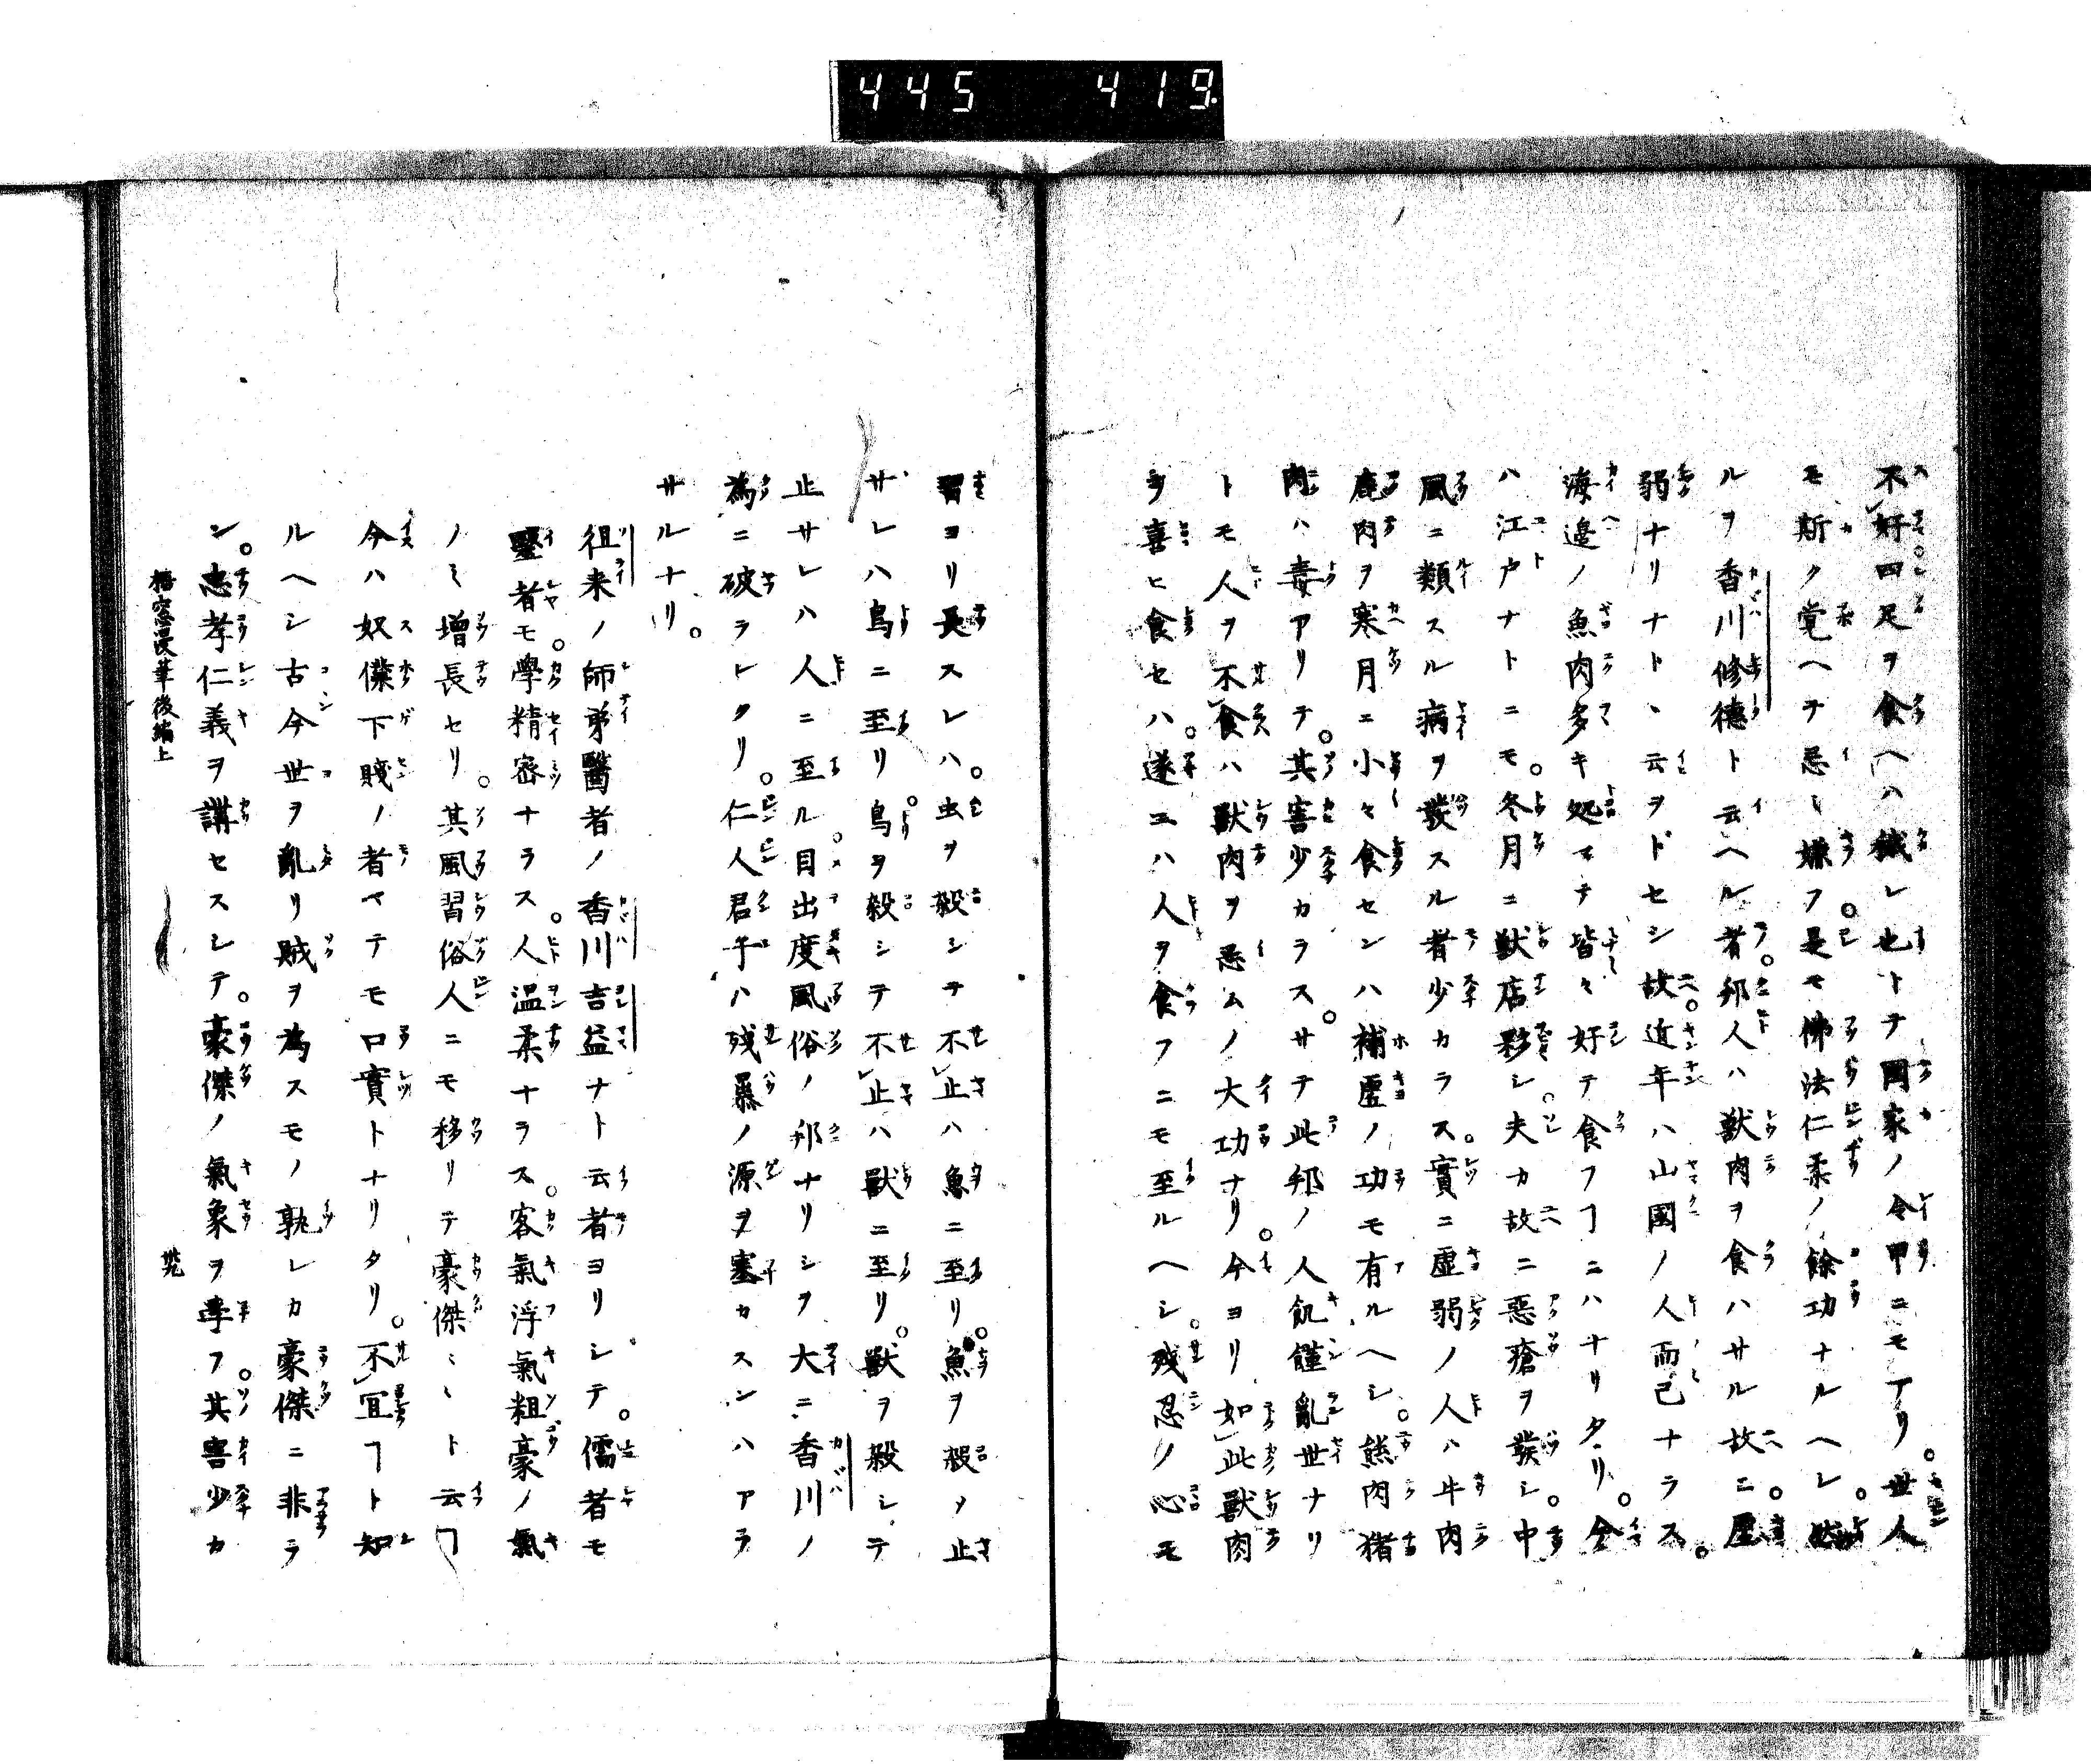 445 419
不好四足ヲ食ヘハ穢レ也トテ國家ノ令甲ニモアリ。世人
モ斯ク覚ヘテ忌ミ嫌フ。是モ佛法仁柔ノ餘功ナルヘシ。然
ルヲ香川修德ト云ヘル者。邦人ハ獸肉ヲ食ハサル故ニ。虛
弱ナリナトヽ云ヲドセシ故。近年ハ山國ノ人而已ナラス。
海邊ノ魚肉多キ処マテ皆々好テ食フヿニハナリタリ。今
ハ江戸ナトニモ。冬月ニ獸店夥シ。夫カ故ニ惡瘡ヲ發シ。中
風ニ類スル病ヲ發スル者少カラス。實ニ虛弱ノ人ハ牛肉
鹿肉ヲ寒月ニ小々食センハ補虛ノ功モ有ルヘシ。熊肉猪
肉ハ毒アリテ。其害少カラス。サテ此邦ノ人飢饉亂世ナリ
トモ人ヲ不食ハ獸肉ヲ忌ムノ大功ナリ。今ヨリ如此獸肉
ヲ喜ヒ食セハ。遂ニハ人ヲ食フニモ至ルヘシ。殘忍ノ心モ
習ヨリ長スレハ。虫ヲ殺シテ不止ハ魚ニ至リ。魚ヲ殺ノ止
サレハ鳥ニ至リ。鳥ヲ殺シテ不止ハ獸ニ至リ。獸ヲ殺シテ
止サレハ人ニ至ル。目出度風俗ノ邦ナリシヲ大ニ香川ノ
為ニ破ラレタリ。仁人君子ハ殘暴ノ源ヲ塞カスンハアラ
サルナリ。
徂来ノ師弟醫者ノ香川吉益ナト云者ヨリシテ。儒者モ
醫者モ。學精密ナラス。人温柔ナラス。客氣浮氣粗豪ノ氣
ノミ增長セリ。其風習俗人ニモ移リテ豪傑〻〻ト云ヿ
今ハ奴僕下賤ノ者マテモ口實トナリタリ。不宜ヿト知
ルヘシ古今世ヲ亂リ賊ヲ為スモノ孰レカ豪傑ニ非ラ
ン。忠孝仁義ヲ講セスシテ。豪傑ノ氣象ヲ學フ。其害少カ
梧窓漫筆後編上 丗六